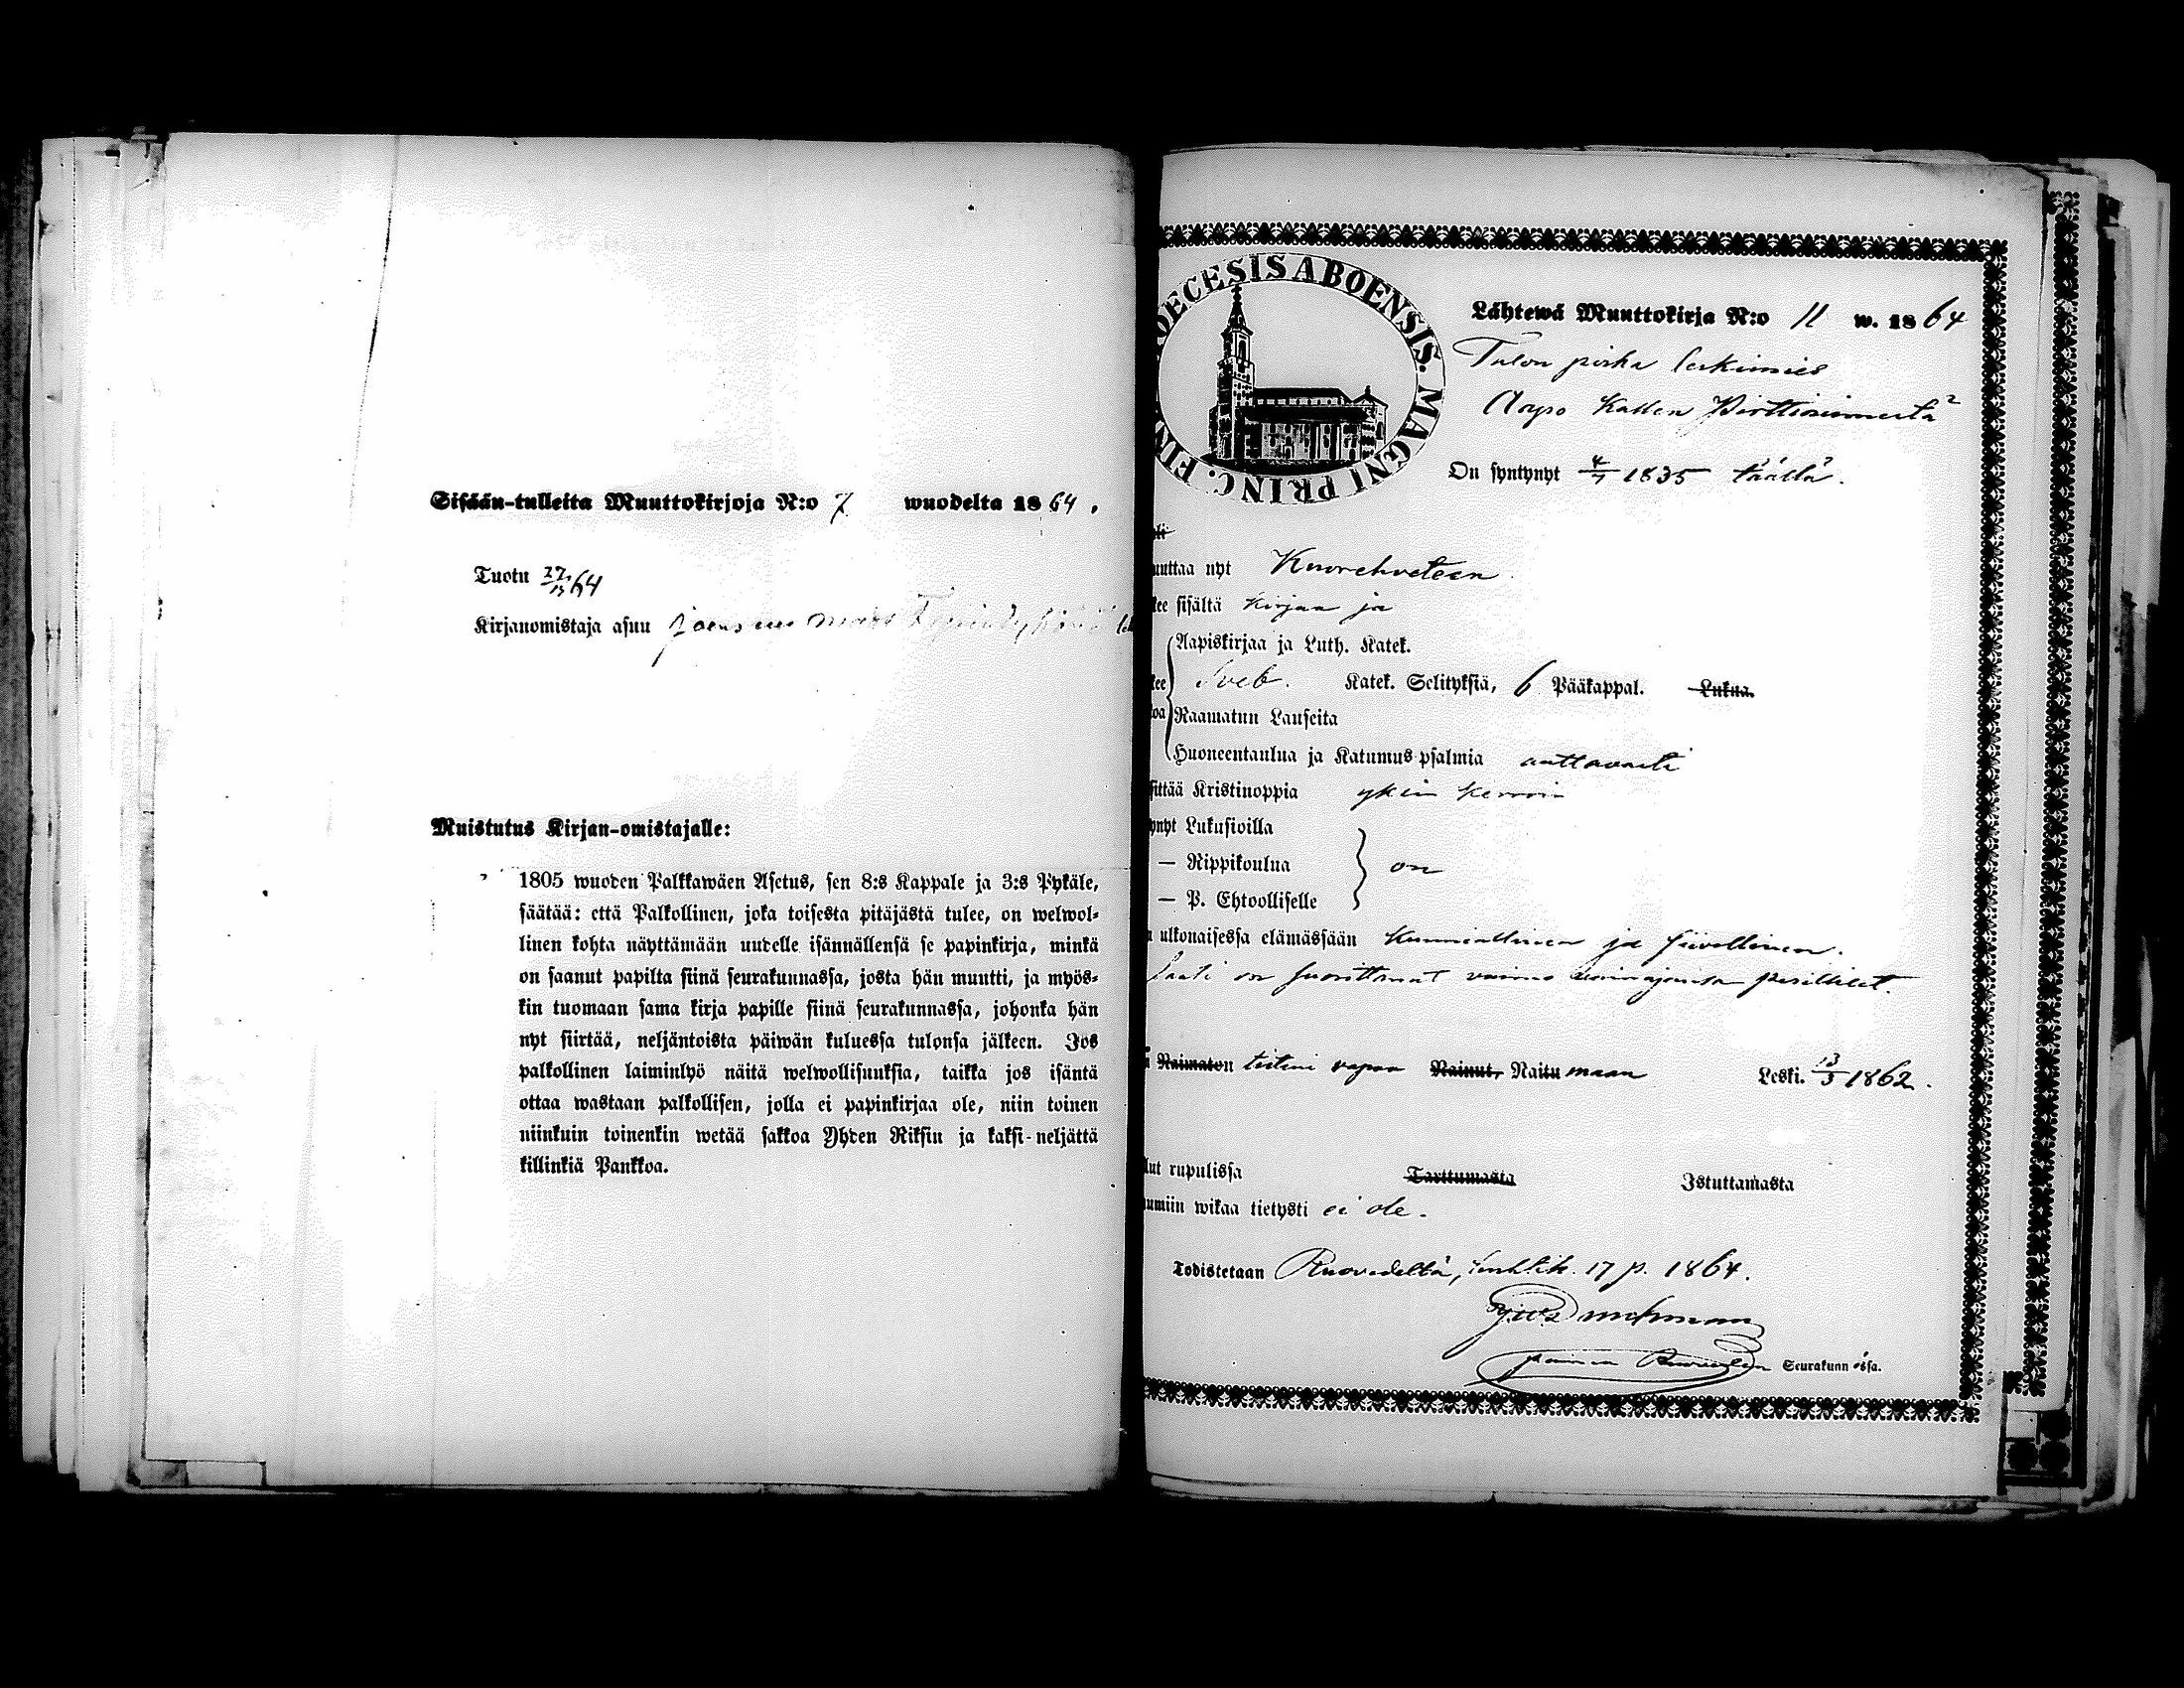 Sisään-tulleita Muuttokirjoja N:o 7 wuodelta 1864.
Tuotu 64
Kirjanomistaja asuu
Muistutus Kirjan-omistajalle:
1805 wuoden Palkkawäen Asetus, sen 8:s Kappale ja 3:s Pykäle,
säätää: että Palkollinen, joka toisesta pitäjästä tulee, on welwol-
linen kohta näyttämään uudelle isännällensä se papinkirja, minkä
on saanut papilta siinä seurakunnassa, josta hän muutti, ja myös-
kin tuomaan sama kirja papille siinä seurakunnassa, johonka hän
nyt siirtää, neljäntoista päiwän kuluessa tulonsa jälkeen. Jos
palkollinen laiminlyö näitä welwollisuuksia, taikka jos isäntä
ottaa wastaan palkollisen, jolla ei papinkirjaa ole, niin toinen
niinkuin toinenkin wetää sakkoa Yhden Riksin ja kaksi-neljättä
killinkiä Pankkoa.
OECESIS ABOENSIS. MAGNI PRINC. FIN
Lähtewä Muuttokirja N:o 11 w. 1864
Talon poika leskimies
Kallen
On syntynyt 4/7 1835 täällä.
uuttaa nyt Kuoreveteen
kee sisältä kirjaa ja
Aapiskirjaa ja Luth. Katek.
Sveb. Katek. Selityksiä, 6 Pääkappal. Lukua.
Raamatun Lauseita
Huoneentaulua ja Katumus-psalmia auttavasti
sittää Kristinoppia
ynyt Lukusioilla
— Rippikoulua on
— P. Ehtoolliselle
ulkonaisessa elämässään kunniallinen ja siivollinen.
on suorittanut vaimo perilliset.
Naimaton vapaa Nainut, Naitu maan Leski. 13/3 1862.
lut rupulissa Tarttumasta Istuttamasta
umiin wikaa tietysti ei ole.
Todistetaan Ruovedeltä, 17 p. 1864.
Seurakunnassa.